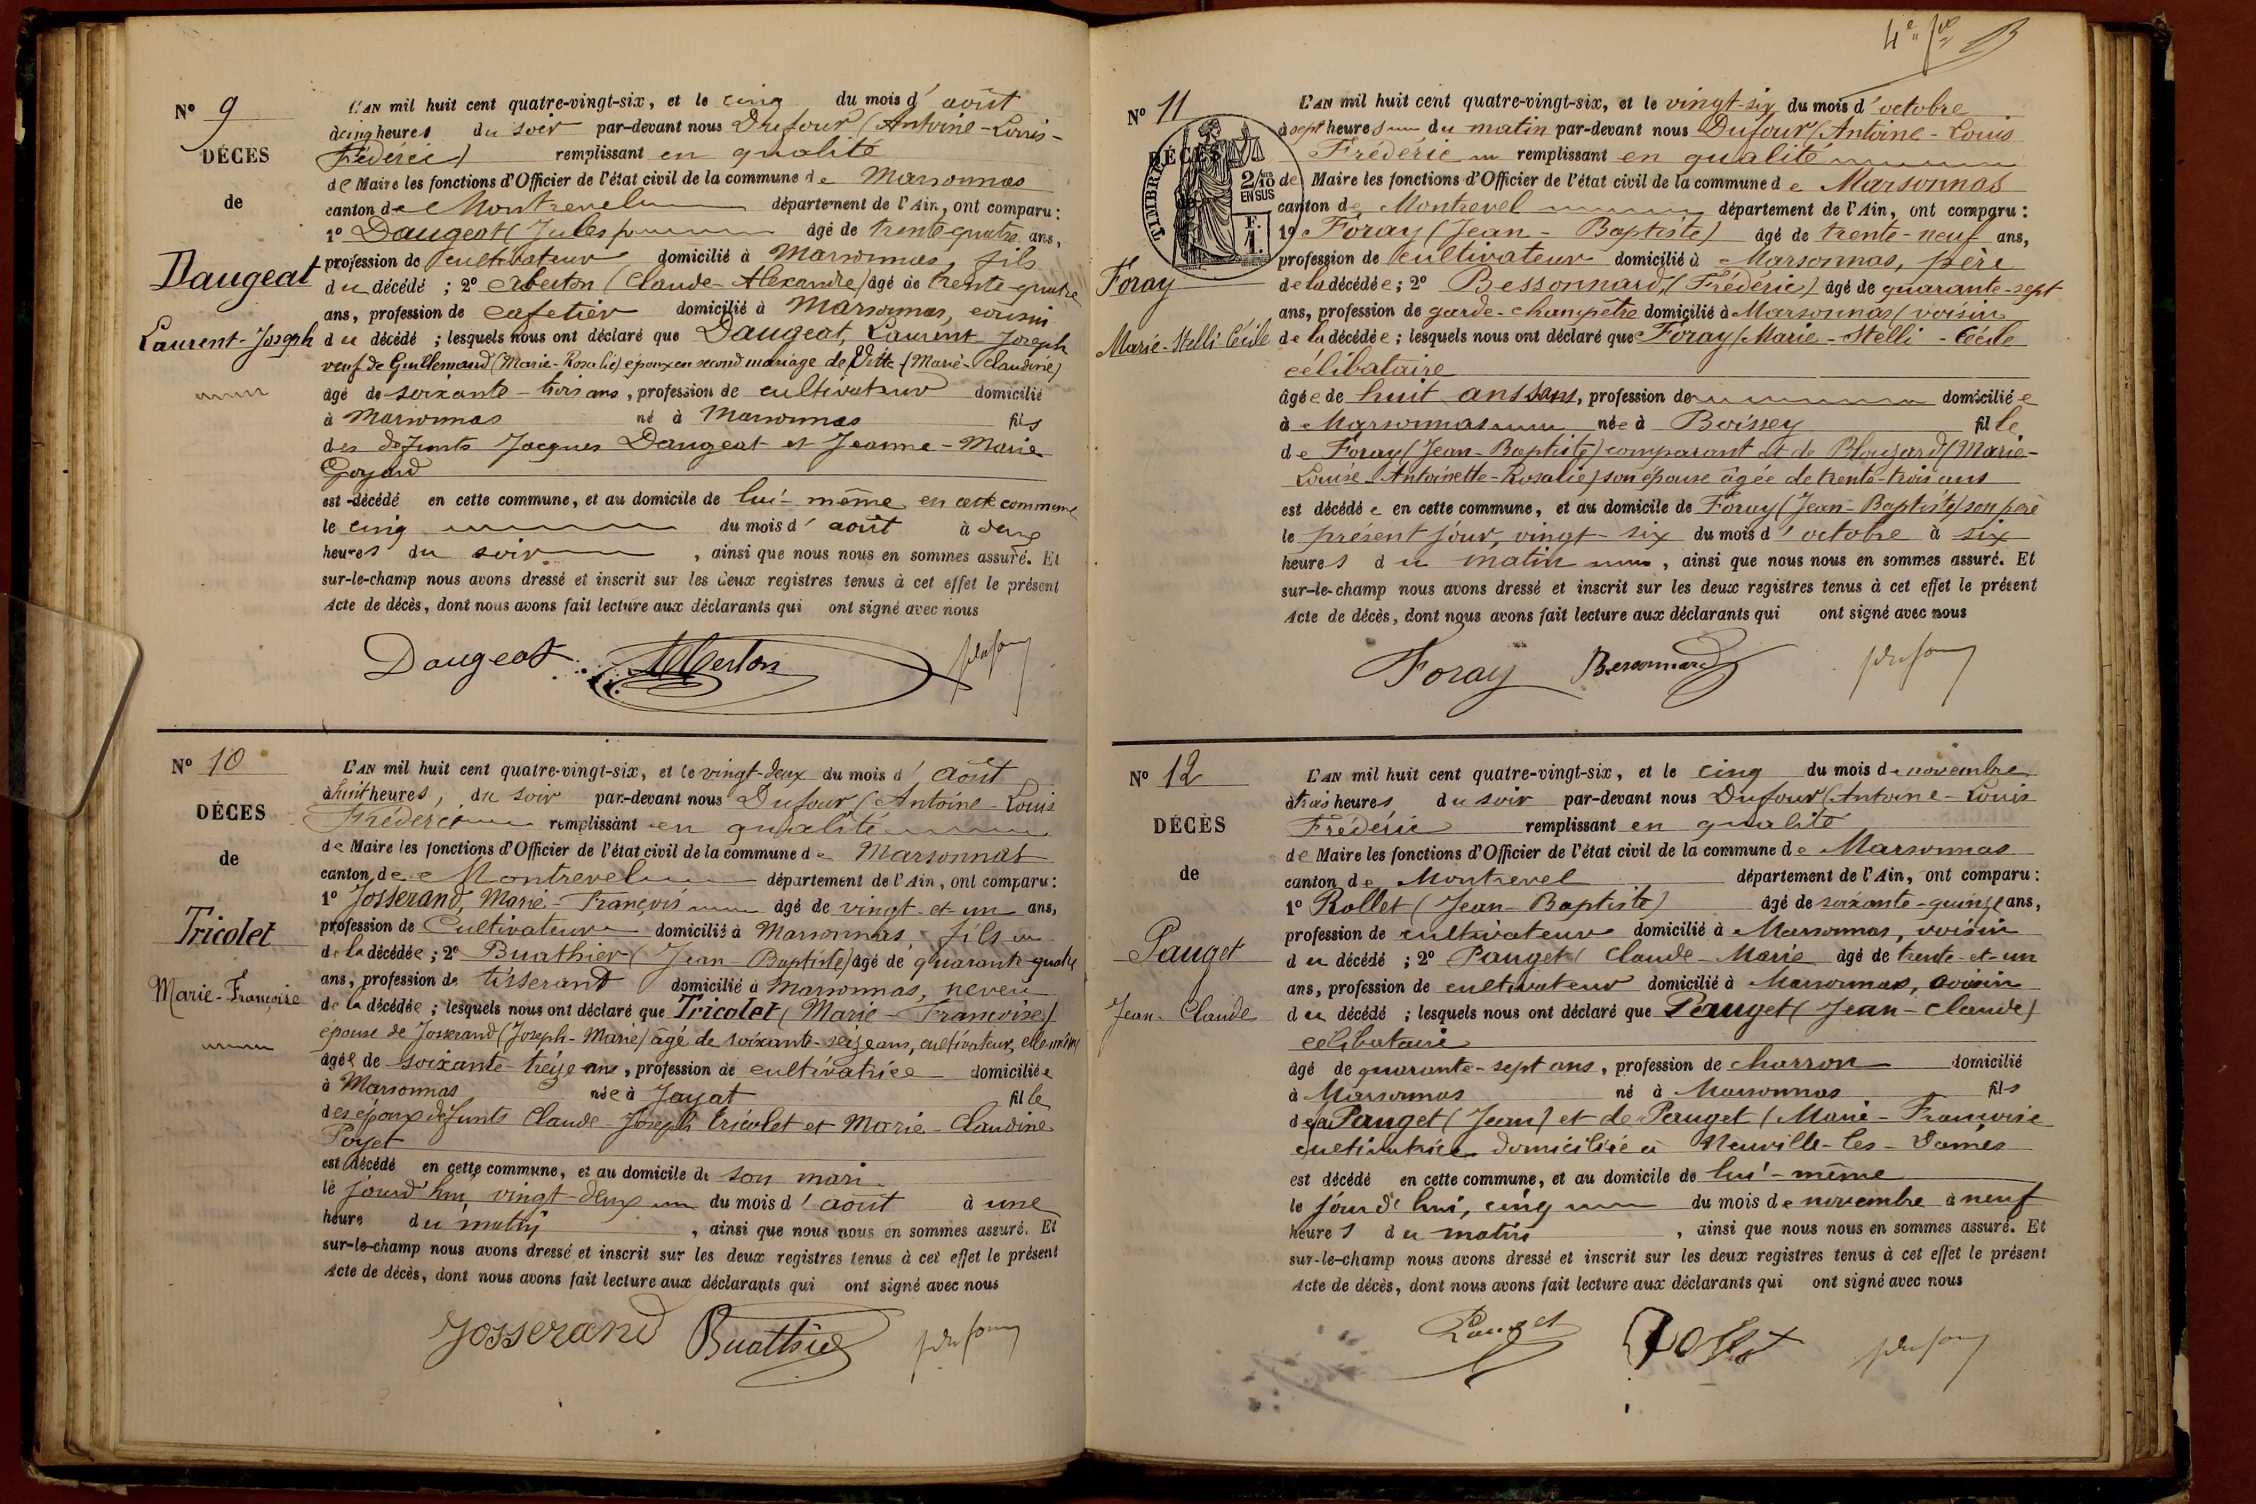 Nº 9
DÉCES
de
Daugeat
Laurent-Joseph
L'AN mil huit cent quatre-vingt-six, et le cinq du mois d'août
à cinq heures du soir par-devant nous Dufour (Antoine-Louis-
Frédéric) remplissant en qualité
de Maire les fonctions d'Officier de l'état civil de la commune de Marsonnas
canton de Montrevel département de l'Ain, ont comparu :
1º Daugeat (Jules) âgé de trente-quatre ans,
profession de cultivateur domicilié à Marsonnas, fils
du décédé ; 2º Alberton (Claude-Alexandre) âgé de trente-quatre
ans, profession de cafetier domicilié à Marsonnas, cousin
du décédé ; lesquels nous ont déclaré que Daugeat, Laurent Joseph
veuf de Guillemaud (Marie-Rosalie) époux en second mariage de Vitte (Marie-Claudine)
âgé de soixante-trois ans, profession de cultivateur domicilié
à Marsonnas né à Marsonnas fils
des défunts Jacques Daugeat et Jeanne-Marie
Goyard
est décédé en cette commune, et au domicile de lui-même en cette commune
le cinq du mois d'août à deux
heures du soir, ainsi que nous nous en sommes assuré. Et
sur-le-champ nous avons dressé et inscrit sur les deux registres tenus à cet effet le présent
Acte de décès, dont nous avons fait lecture aux déclarants qui ont signé avec nous
Daugeat Alberton
Nº 10
DÉCES
de
Tricolet
Marie-Françoise
L'AN mil huit cent quatre-vingt-six, et le vingt-deux du mois d'août
à huit heures, du soir par-devant nous Dufour (Antoine-Louis
Frédéric remplissant en qualité
de Maire les fonctions d'Officier de l'état civil de la commune de Marsonnas
canton de Montrevel département de l'Ain, ont comparu :
1º Josserand, Marie-François âgé de vingt-et-un ans,
profession de Cultivateur domicilié à Marsonnas, fils
de la décédée ; 2º Buathier (Jean-Baptiste) âgé de quarante quatre
ans, profession de tisserand domicilié à Marsonnas, neveu
de la décédée ; lesquels nous ont déclaré que Tricolet (Marie-Françoise)
épouse de Josserand (Joseph-Marie) âgé de soixante-seize ans, cultivateur, elle même
âgée de soixante-treize ans, profession de cultivatrice domiciliée
à Marsonnas née à Jayat fille
des époux défunts Claude-Joseph Tricolet et Marie-Claudine
Poyet
est décédé en cette commune, et au domicile de son mari
le jourd'hui, vingt-deux du mois d'août à une
heure du matin, ainsi que nous nous en sommes assuré. Et
sur-le-champ nous avons dressé et inscrit sur les deux registres tenus à cet effet le présent
Acte de décès, dont nous avons fait lecture aux déclarants qui ont signé avec nous
Josserand Buathier
Nº 11
DÉCES
de
TIMBRE
2/10
EN SUS
Foray
Marie-Stelli-Cécile
L'AN mil huit cent quatre-vingt-six, et le vingt-six du mois d'octobre
à sept heures du matin par-devant nous Dufour (Antoine-Louis
Frédéric remplissant en qualité
de Maire les fonctions d'Officier de l'état civil de la commune de Marsonnas
canton de Montrevel département de l'Ain, ont comparu :
1º Foray (Jean-Baptiste) âgé de trente-neuf ans,
profession de cultivateur domicilié à Marsonnas, père
de la décédée ; 2º Bessonnard (Frédéric) âgé de quarante-sept
ans, profession de garde-champêtre domicilié à Marsonnas, voisin
de la décédée ; lesquels nous ont déclaré que Foray (Marie-Stelli-Cécile
célibataire
âgée de huit ans sans, profession de domiciliée
à Marsonnas née à Boissey fille
de Foray (Jean-Baptiste) comparant et de Blouzard (Marie-
Louise-Antoinette-Rosalie) son épouse âgée de trente-trois ans
est décédée en cette commune, et au domicile de Foray (Jean-Baptiste) son père
le présent jour, vingt-six du mois d'octobre à six
heures du matin, ainsi que nous nous en sommes assuré. Et
sur-le-champ nous avons dressé et inscrit sur les deux registres tenus à cet effet le présent
Acte de décès, dont nous avons fait lecture aux déclarants qui ont signé avec nous
Foray Bessonnard
Nº 12
DÉCÈS
de
Pauget
Jean-Claude
L'AN mil huit cent quatre-vingt-six, et le cinq du mois de novembre
à trois heures du soir par-devant nous Dufour (Antoine-Louis
Frédéric remplissant en qualité
de Maire les fonctions d'Officier de l'état civil de la commune de Marsonnas
canton de Montrevel département de l'Ain, ont comparu :
1º Rollet (Jean-Baptiste) âgé de soixante-quinze ans,
profession de cultivateur domicilié à Marsonnas, voisin
du décédé ; 2º Pauget (Claude-Marie âgé de trente-et-un
ans, profession de cultivateur domicilié à Marsonnas, voisin
du décédé ; lesquels nous ont déclaré que Pauget (Jean-Claude)
célibataire
âgé de quarante-sept ans, profession de charron domicilié
à Marsonnas né à Marsonnas fils
de feu Pauget (Jean) et de Pauget (Marie-Françoise
cultivatrice domiciliée à Neuville-les-Dames
est décédé en cette commune, et au domicile de lui-même
le jourd'hui, cinq du mois de novembre à neuf
heures du matin, ainsi que nous nous en sommes assuré. Et
sur-le-champ nous avons dressé et inscrit sur les deux registres tenus à cet effet le présent
Acte de décès, dont nous avons fait lecture aux déclarants qui ont signé avec nous
Pauget